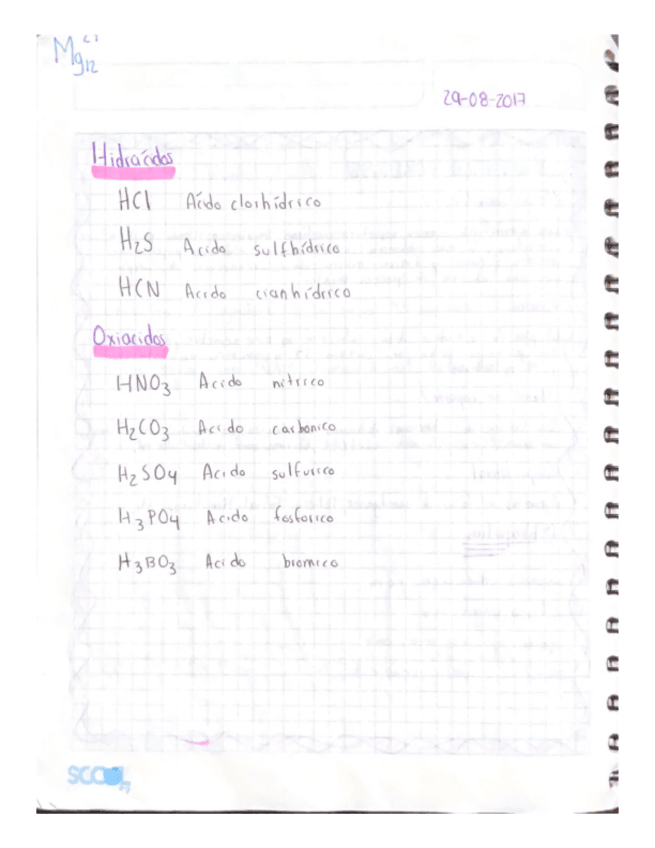 Mg 12
29-08-2017
Hidraácidos
HCl Acido clorhídrico
H₂S Acido sulfhídrico
HCN Acido cianhídrico
Oxiacidos
HNO₃ Acido nitrico
H₂CO₃ Acido carbonico
H₂SO₄ Acido sulfurico
H₃PO₄ Acido fosforico
H₃BO₃ Acido bromico